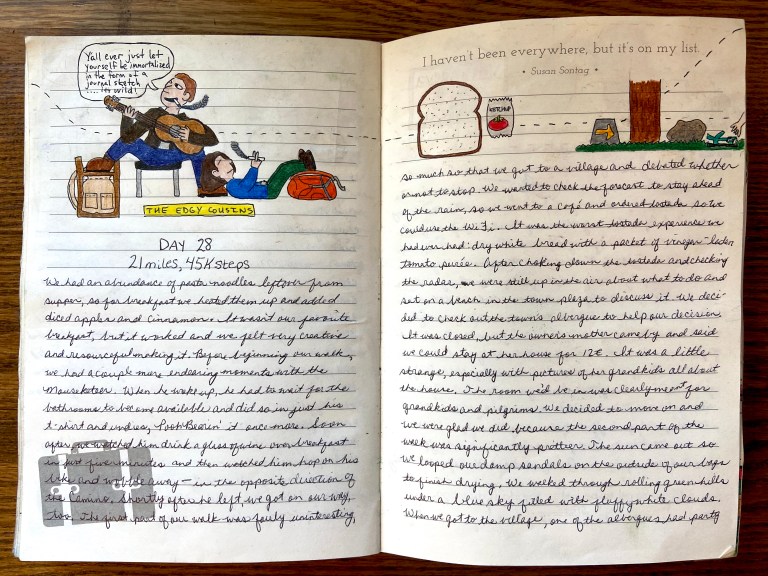 Y'all ever just let
yourself be immortalized
in the form of a
journal sketch
.... its wild!
THE EDGY COUSINS
DAY 28
21 miles, 45K steps
We had an abundance of pasta noodles leftover from
supper, so for breakfast we heated them up and added
diced apples and cinnamon. It wasn't our favorite
breakfast, but it worked and we felt very creative
and resourceful making it. Before beginning our walk,
we had a couple more endearing moments with the
Mousketeer. When he woke up, he had to wait for the
bathrooms to become available and did so in just his
t-shirt and undies, Pooh Bearin' it once more. Soon
after, we watched him drink a glass of wine over breakfast
in just five minutes and then watched him hop on his
bike and wobble away — in the opposite direction of
the Camino. Shortly after he left, we got on our way,
too. The first part of our walk was fairly uninteresting,
I haven't been everywhere, but it's on my list.
• Susan Sontag •
KETCHUP
so much so that we got to a village and debated whether
or not to stop. We wanted to check the forecast to stay ahead
of the rain, so we went to a café and ordered tostada so we
could use the WiFi. It was the worst tostada experience we
had ever had: dry white bread with a packet of vinegar-laden
tomato purée. After choking down the tostada and checking
the radar, we were still up in the air about what to do and
sat on a bench in the town plaza to discuss it. We deci-
ded to check out the town's albergue to help our decision.
It was closed, but the owners mother came by and said
we could stay at her house for 12€. It was a little
strange, especially with pictures of her grandkids all about
the house. The room we'd be in was clearly meant for
grandkids and pilgrims. We decided to move on and
we were glad we did, because the second part of the
week was significantly prettier. The sun came out so
we looped our damp sandals on the outside of our bags
to finish drying. We weeked through rolling green hills
under a blue sky filled with fluffy white clouds.
When we got to the village, one of the albergues had party